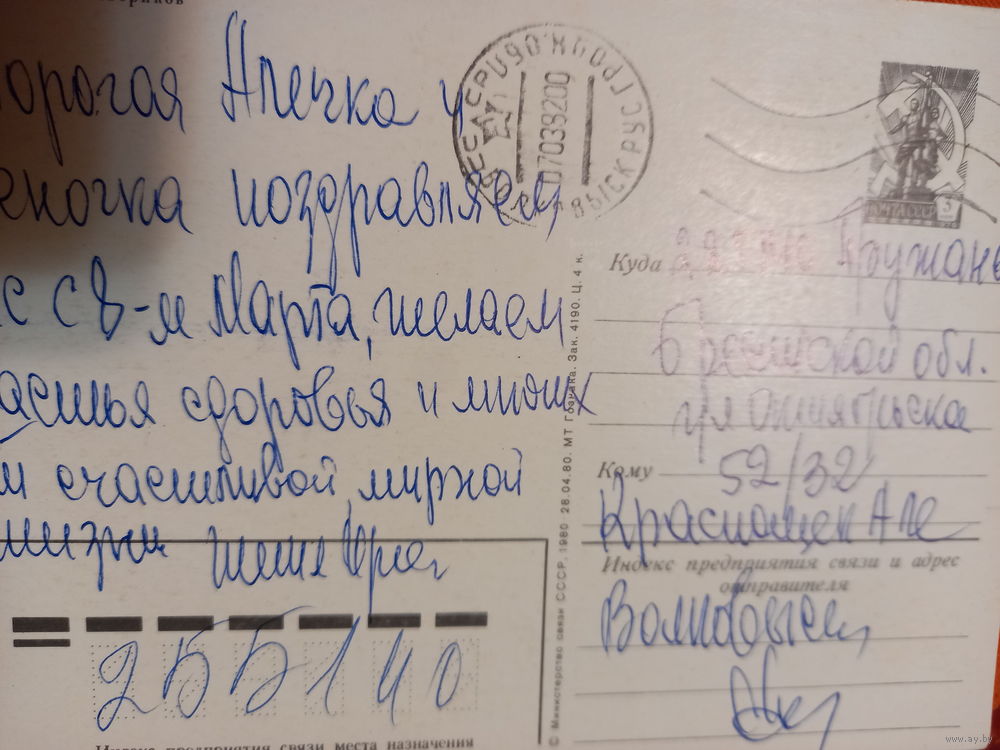 орогая Алечка и
еночка поздравляем
с с 8-м Марта, желаем
здоровья и многих
счастливой, мирной
жизни
255140
Индекс предприятия связи места назначения
© Министерство связи СССР. 1980 28.04.80. МТ Гознака. Зак. 4190. Ц. 4 к.
07038200
ПОЧТА СССР
Куда
Пружаны
Брестской обл.
ул Октябрьская
Кому
52/32
Индекс предприятия связи и адрес
отправителя
Волковыск
www.ay.by